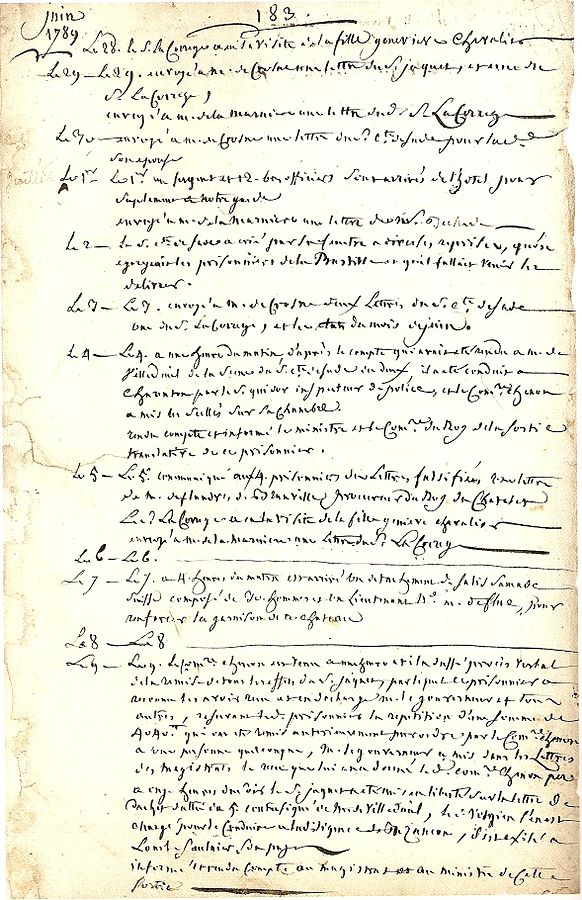 juin 183.
1789
Le 28. le S. La Correge a eu la visite de la fille genevieve Chevalier
Le 29 — Le 29. envoyé a m. de Crosne une lettre du S. jaquet, et une du
S. La Correge,
envoyé a m. de la marniere une lettre dud. S. La Correge
Le 30 envoyé a m. de Crosne une lettre du S. Cte. de Sade pour la de.
Son epouse
Le 1er. Le 1er. un sergent et 12. bas officiers sont arrivés de l'hotel pour
Suplement a notre garde
envoyé a m. de la marniere une lettre de
Le 2 — le S. Cte. de Sade a crié par sa fenetre a diverses reprises, qu'on
egorgeait les prisonniers de la Bastille et qu'il fallait venir les
delivrer.
Le 3 — Le 3. envoyé a m. de Crosne deux Lettres du S. Cte. de Sade
une du S. La Correge, et les du mois de juin.
Le 4 — Le 4. a une heure du matin, d'après le compte qui avait eté rendu a m. de
Villedeuil de la Scene du S. Cte. de Sade du deux, il a eté conduit a
Charenton par le S. quidor inspecteur de police, et le Comre. chenon
a mis les scellés sur sa chambre.
rendu compte et informé le ministre et le Comre. du Roy de la sortie
translative de ce prisonnier.
Le 5 — Le 5. communiqué aux 4. prisonniers des Lettres falsifiées une lettre
de m. de flandre de Brunville procureur du Roy du Chatelet
Le S. La Correge a eu la visite de la fille genevieve chevalier
envoyé a m. de la marniere une Lettre du S. La Correge
Le 6 — Le 6.
Le 7 — Le 7. a 4 heures du matin est arrivé un detachement de Salis Samade
Suisse composé de 30. hommes et un Lieutenant Né. m. deflue, pour
renforcer la garnison de ce chateau
Le 8 — Le 8
Le 9 — Le 9. le Comre. chenon est venu a une heure et il a dressé procès verbal
de la remise de tous les effets du S. jaquet, par lequel ce prisonnier a
reconnu les avoir reçu et en decharge m. le gouverneur et tous
autres, reservant led. prisonnier la repetition d'une somme de
qui ont eté remis anterieurement par ordre par le Comre. chenon
a une personne quelconque, m. le gouverneur a mis dans les Lettres
des magistrats le reçu que lui en a donné led. Comre. chenon
a onze heures du soir le S. jaquet a eté mis en liberté sur la lettre de
cachet dattée du 5 contresigné de m. de Villedeuil, le S.
chargé pour le conduire a la diligence de Bezancon, il est exilé a
Lons le Saulnier, son pays
informé et rendu Compte au magistrat et au ministre de cette
sortie